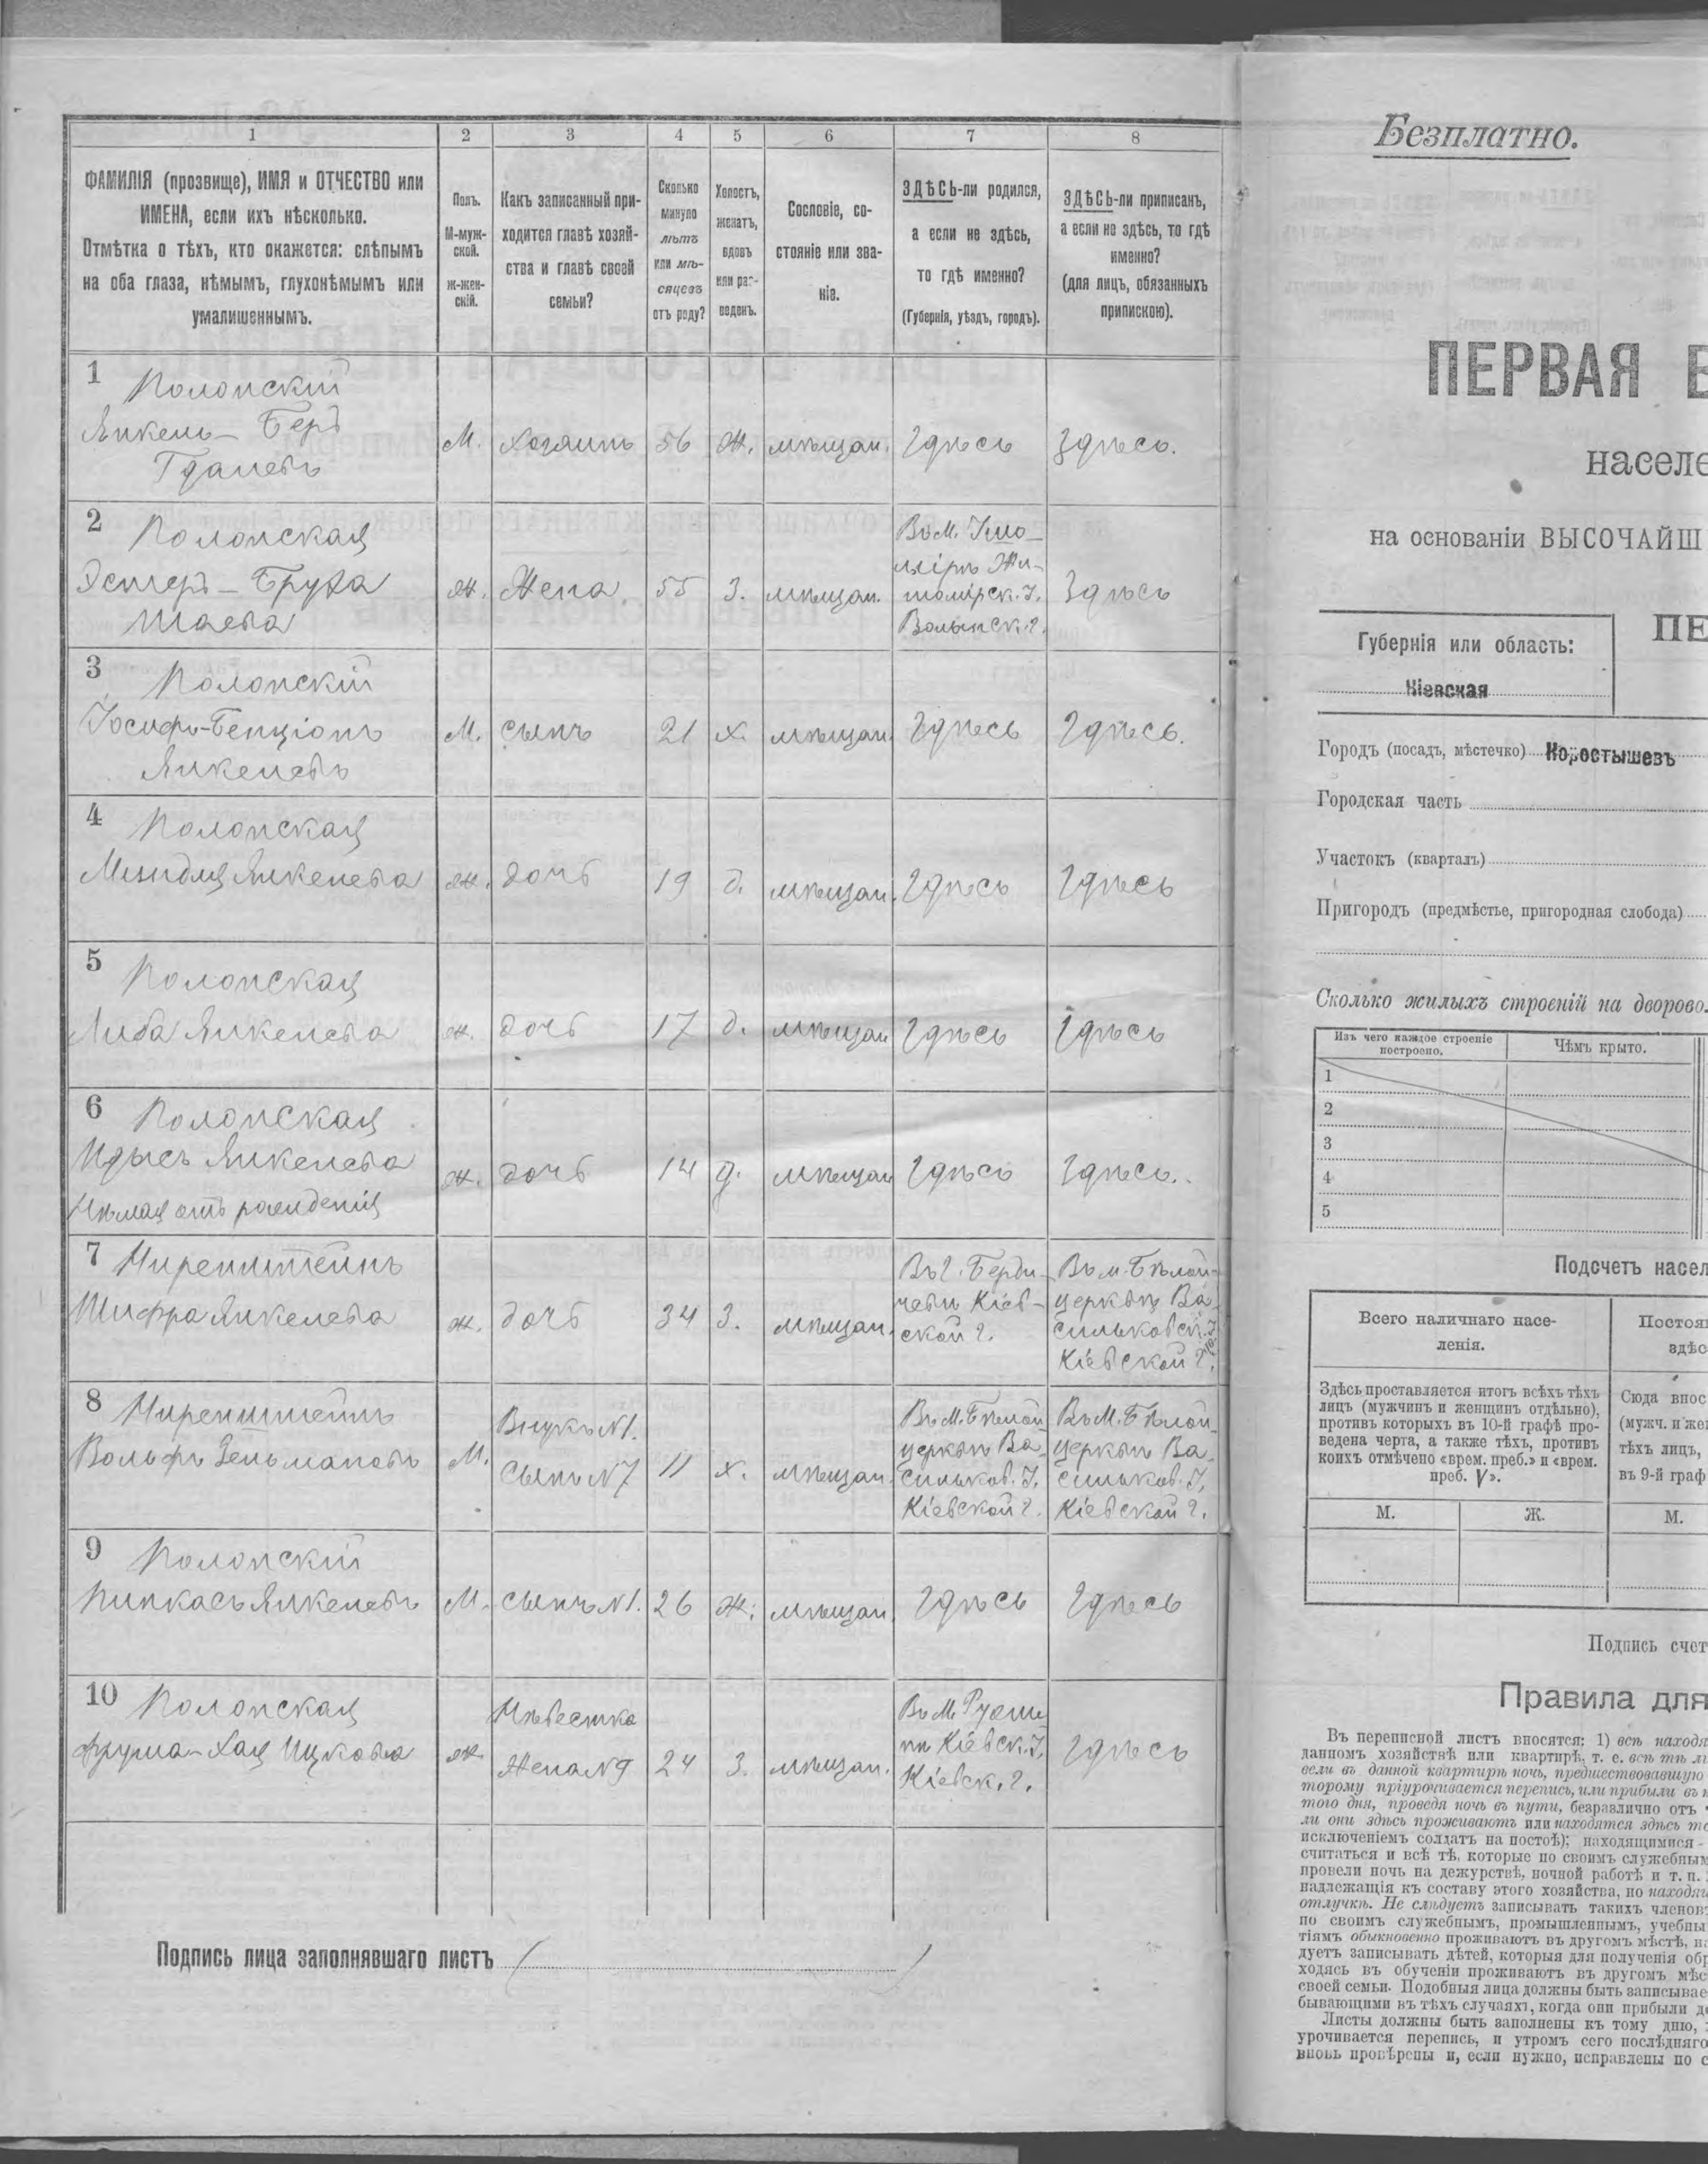 1
2
3
4
5
6
7
8
ФАМИЛІЯ (прозвище), ИМЯ и ОТЧЕСТВО или
ИМЕНА, если ихъ нѣсколько.
Отмѣтка о тѣхъ, кто окажется: слѣпымъ
на оба глаза, нѣмымъ, глухонѣмымъ или
умалишеннымъ.
Полъ.
М-муж-
ской.
ж-жен-
скій.
Какъ записанный при-
ходится главѣ хозяй-
ства и главѣ своей
семьи?
Сколько
минуло
лѣтъ
или мѣ-
сяцевъ
отъ роду?
Холостъ,
женатъ,
вдовъ
или раз-
веденъ.
Сословіе, со-
стояніе или зва-
ніе.
ЗДѢСЬ-ли родился,
а если не здѣсь,
то гдѣ именно?
(Губернія, уѣздъ, городъ).
ЗДѢСЬ-ли приписанъ,
а если не здѣсь, то гдѣ
именно?
(для лицъ, обязанныхъ
припискою).
1 Полонскій
Янкель-Беръ
Гдалевъ
М. хозяинъ 56 Ж. мѣщан. Здѣсь Здѣсь.
2 Полонская
Эстеръ-Бруха
Шаева
Ж. Жена 55 З. мѣщан.
Житомірск. У.
Волынск. г.
Здѣсь
3 Полонскій
Іосифъ-Бенціонъ
Янкелевъ
М. сынъ 21 х. мѣщан. Здѣсь Здѣсь.
4 Полонская
Миндля Янкелева
ж. дочь 19 д. мѣщан. Здѣсь Здѣсь
5 Полонская
Либа Янкелева
ж. дочь 17 д. мѣщан Здѣсь Здѣсь
6 Полонская
Идысь Янкелева
Нѣмая отъ рожденія
ж. дочь 14 д. мѣщан Здѣсь Здѣсь.
7 Ниренштейнъ
Шифра Янкелева
ж. дочь 34 З. мѣщан.
Въ г. Берди-
чевѣ Кіев-
ской г.
Въ м. Бѣлой-
церквѣ Ва-
сильковск. У.
Кіевской г.
8 Ниренштейнъ
Вольфъ Зельмановъ
М.
Внукъ N1.
Сынъ N7
11 х. мѣщан.
Въ М. Бѣлой
церквѣ Ва-
сильков. У.
Кіевской г.
Въ М. Бѣлой
церквѣ Ва-
сильков. У.
Кіевской г.
9 Полонскій
Пинкасъ Янкелевъ
М. сынъ N1. 26 Ж. мѣщан. Здѣсь Здѣсь
10 Полонская
Фрума-Хая Ицкова
ж.
Невѣстка
Жена N9
24 З. мѣщан.
Въ М. Ружи-
нѣ Кіевск. У.
Кіевск. г.
Здѣсь
Подпись лица заполнявшаго листъ
Безплатно.
ПЕРВАЯ В
населе
на основаніи ВЫСОЧАЙШ
ПЕ
Губернія или область:
Кіевская
Городъ (посадъ, мѣстечко) Коростышевъ
Городская часть
Участокъ (кварталъ)
Пригородъ (предмѣстье, пригородная слобода)
Сколько жилыхъ строеній на дворово
Изъ чего каждое строеніе
построено.
Чѣмъ крыто.
1
2
3
4
5
Подсчетъ насел
Всего наличнаго насе-
ленія.
Постоян
здѣс
Здѣсь проставляется итогъ всѣхъ тѣхъ
лицъ (мужчинъ и женщинъ отдѣльно),
противъ которыхъ въ 10-й графѣ про-
ведена черта, а также тѣхъ, противъ
коихъ отмѣчено «врем. преб.» и «врем.
преб. V».
Сюда внос
(мужч. и жен
тѣхъ лицъ,
въ 9-й граф
М.
Ж.
М.
Подпись счет
Правила для
Въ переписной листъ вносятся: 1) всѣ находя
данномъ хозяйствѣ или квартирѣ, т. е. всѣ тѣ ли
вели въ данной квартирѣ ночь, предшествовавшую
торому пріурочивается перепись, или прибыли въ н
того дня, проведя ночь въ пути, безразлично отъ
ли они здѣсь проживаютъ или находятся здѣсь то
исключеніемъ солдатъ на постоѣ); находящимися
считаться и всѣ тѣ, которые по своимъ служебным
провели ночь на дежурствѣ, ночной работѣ и т. п.
надлежащія къ составу этого хозяйства, но находя
отлучкѣ. Не слѣдуетъ записывать такихъ членовъ
по своимъ служебнымъ, промышленнымъ, учебны
тіямъ обыкновенно проживаютъ въ другомъ мѣстѣ, н
дуетъ записывать дѣтей, которыя для полученія обр
ходясь въ обученіи проживаютъ въ другомъ мѣс
своей семьи. Подобныя лица должны быть записывае
бывающими въ тѣхъ случаяхъ, когда они прибыли до
Листы должны быть заполнены къ тому дню,
урочивается перепись, и утромъ сего послѣдняго
вновь провѣрены и, если нужно, исправлены по с